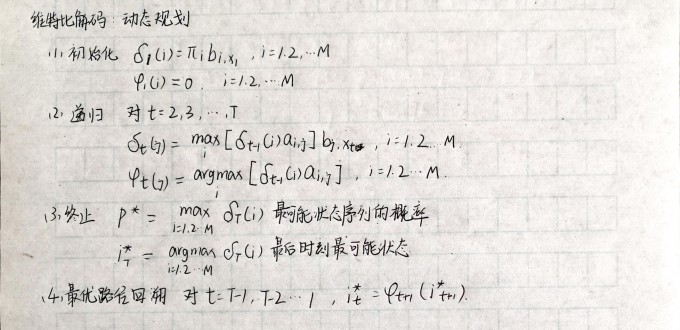 维特比解码：动态规划
(1) 初始化 δ₁(i)=πᵢbᵢ,ₓ₁ , i=1.2,…M
φ₁(i)=0 . i=1.2,…M
(2) 递归 对 t=2,3,…,T
δt(j) = max_i [δt-1(i)ai,j] bj,xt , i=1.2…M.
φt(j) = argmax_i [δt-1(i)ai,j] , i=1.2…M.
(3) 终止 P* = max_{i=1.2…M} δT(i) 最可能状态序列的概率
i*_T = argmax_{i=1.2…M} δT(i) 最后时刻最可能状态
(4) 最优路径回溯 对 t=T-1, T-2…1 , i*_t = φt+1(i*_t+1).